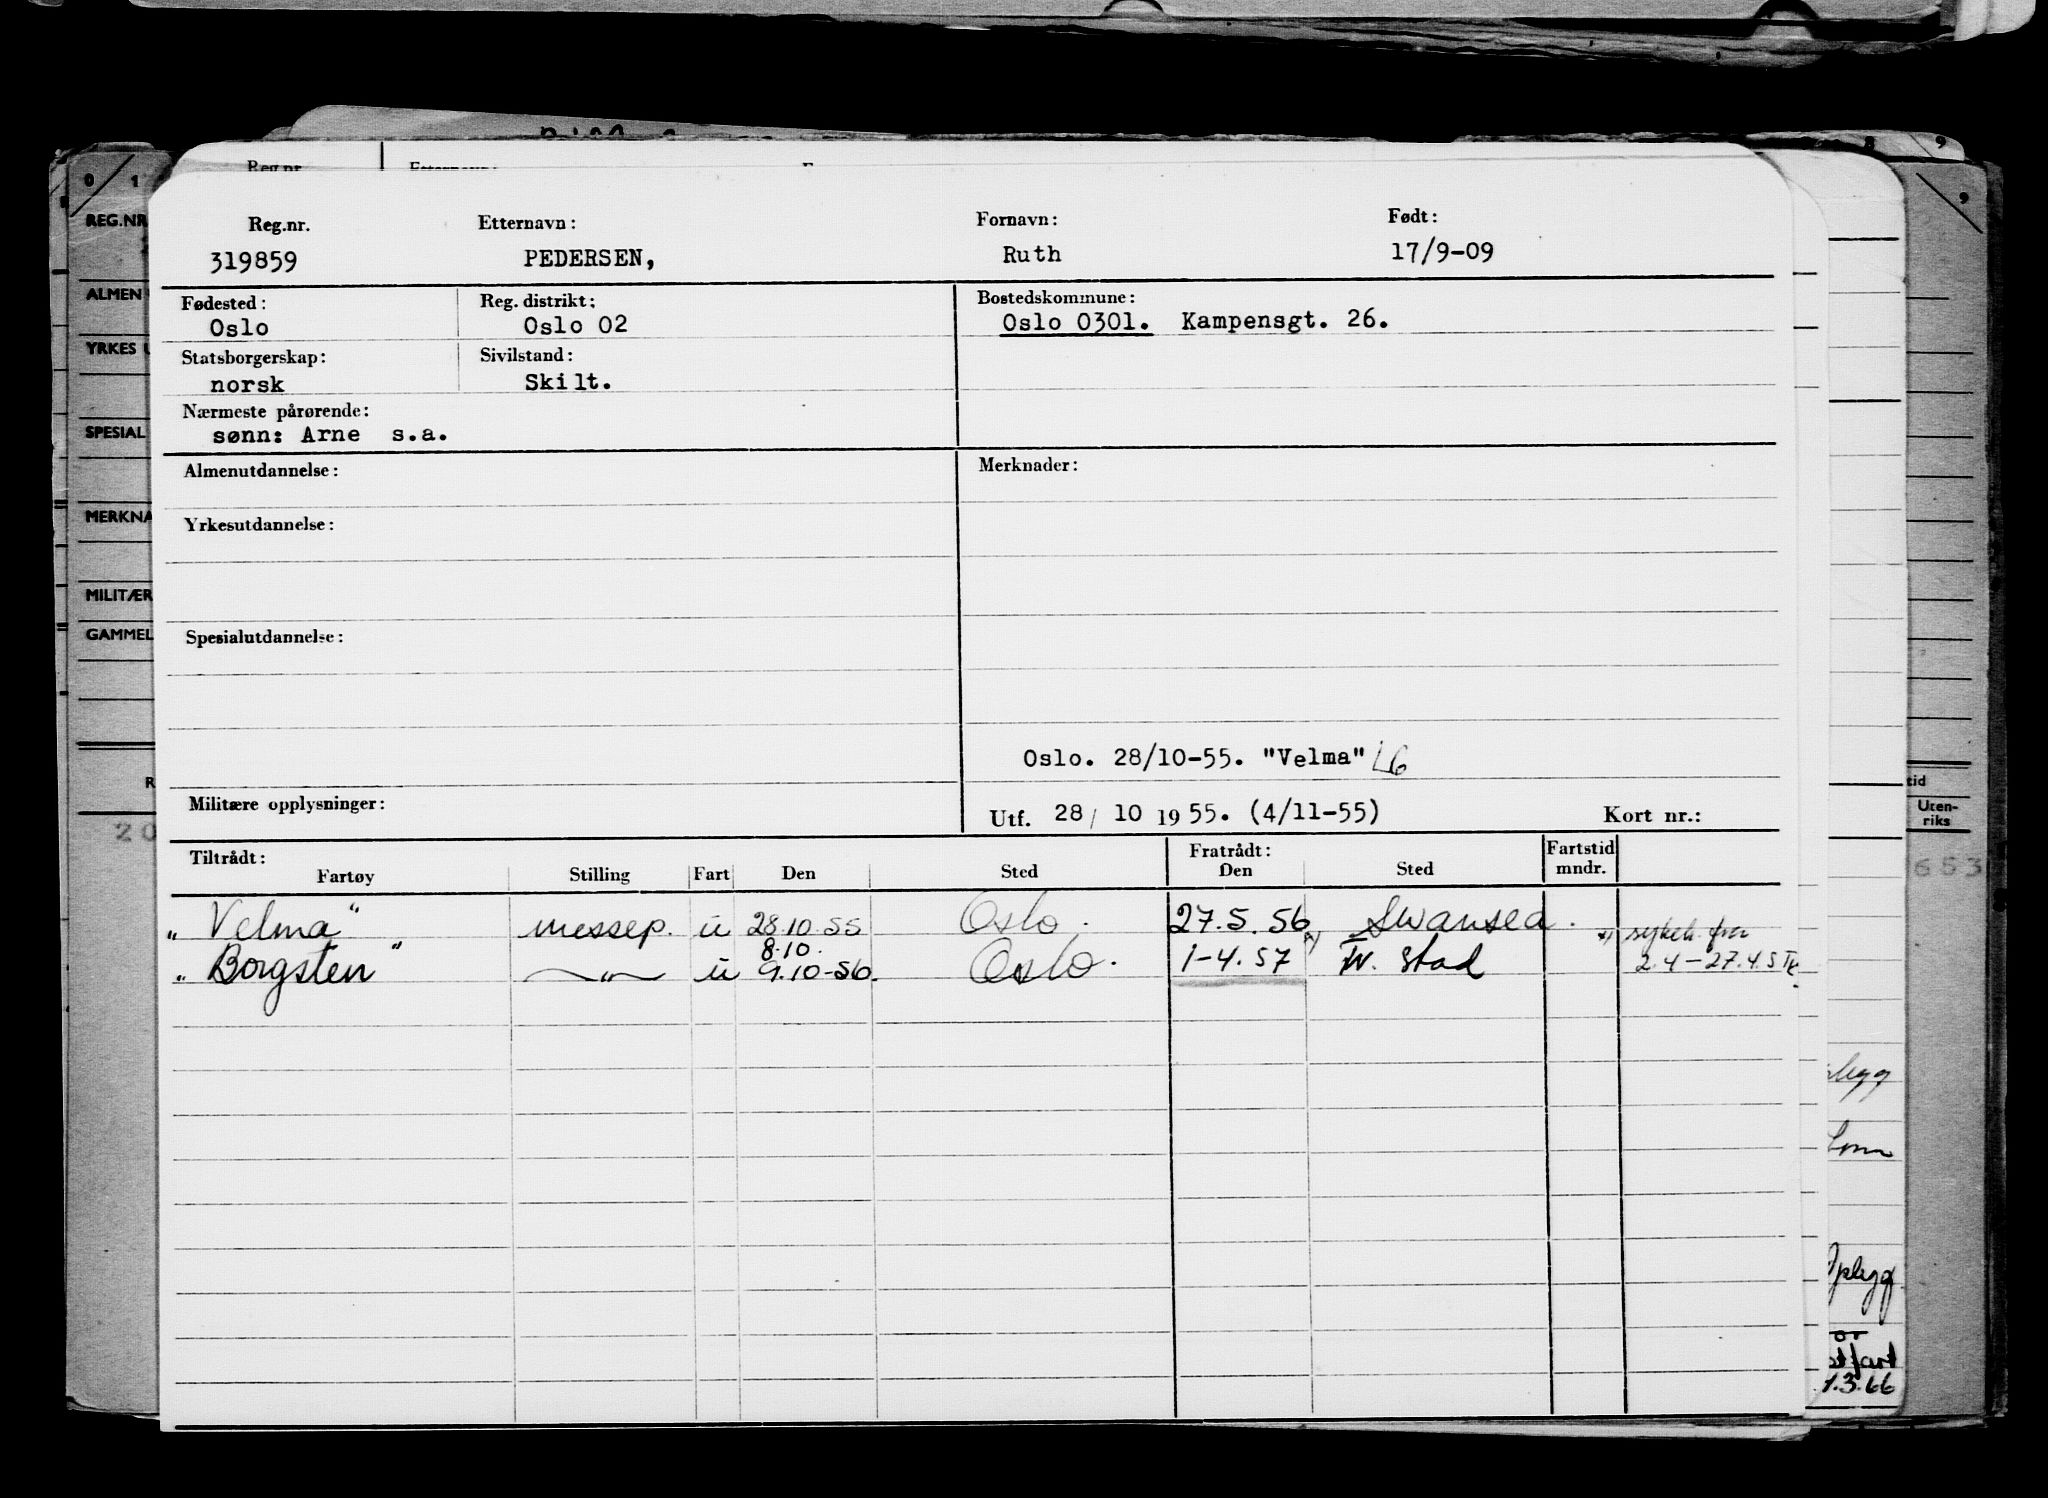 Reg.nr. Etternavn: Fornavn: Født:
319859 PEDERSEN, Ruth 17/9-09
Fødested: Reg. distrikt: Bostedskommune:
Oslo Oslo 02 Oslo 0301. Kampensgt. 26.
Statsborgerskap: Sivilstand:
norsk Skilt.
Nærmeste pårørende:
sønn: Arne s.a.
Almenutdannelse: Merknader:
Yrkesutdannelse:
Spesialutdannelse:
Oslo. 28/10-55. "Velma" L6
Militære opplysninger: Utf. 28/ 10 1955. (4/11-55) Kort nr.:
Tiltrådt: Fratrådt: Fartstid
Fartøy Stilling Fart Den Sted Den Sted mndr.
"Velma" messep. u 28.10.55 Oslo. 27.5.56 Swansea.
8.10.
"Borgsten" —"— u 9.10-56. Oslo. 1-4.57 x) Fr. stad x) sykeh. fra
2.4-27.4.57
REG.NR
ALMEN
YRKES U
SPESIAL
MERKNA
MILITÆR
GAMMEL
0 1
9
9
tid
Uten-
riks
20
653
1.3.66